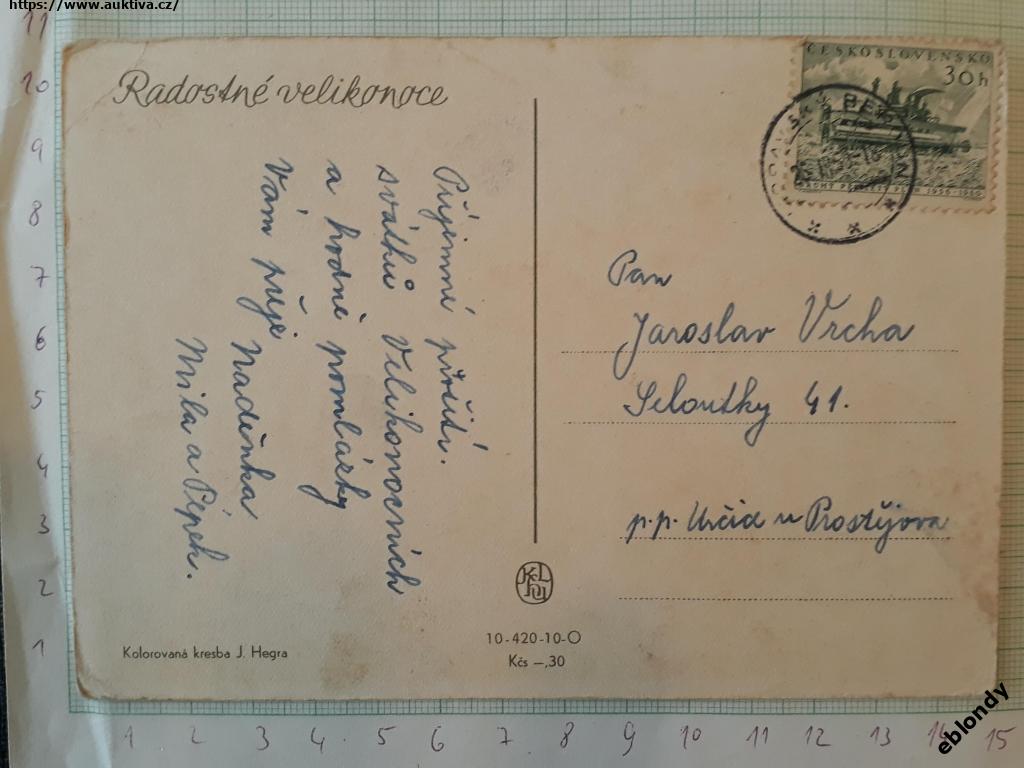 https://www.auktiva.cz/
Radostné velikonoce
Příjemné prožití.
svátků Velikonocních
a hodně pomlázky
Vám přeje Naděnka
Mila a Pépek.
Kolorovaná kresba J. Hegra
10-420-10-O
Kčs –,30
ČESKOSLOVENSKO
30h
DRUHÝ PĚTILETÝ PLÁN 1956-1960
Pan
Jaroslav Vrcha
Seloutky 41.
p.p. Určice u Prostějova
11
10
9
8
7
6
5
4
3
2
1
1 2 3 4 5 6 7 8 9 10 11 12 13 14 15
eblondy